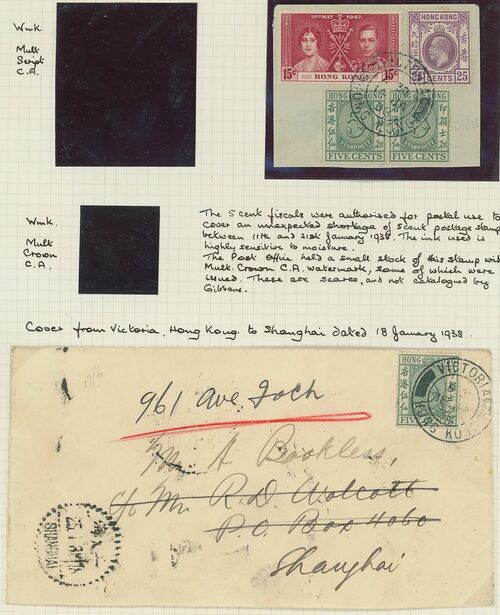 Wmk
Mult
Script
C.A.
12TH MAY 1937.
15c HONG KONG 15c
HONG KONG
CENTS 25
HONG KONG HONG KONG
STAMP DUTY STAMP DUTY
FIVE CENTS FIVE CENTS
Wmk.
Mult
Crown
C.A.
The 5 cent fiscals were authorised for postal use to
cover an unexpected shortage of 5 cent postage stamp
between 11th and 21st January 1938. The ink used is
highly sensitive to moisture.
The Post Office held a small stock of this stamp with
Mult. Crown C.A. watermark, some of which were
issued. These are scarce, and not catalogued by
Gibbons.
Cover from Victoria, Hong Kong to Shanghai dated 18 January 1938.
HONG
VICTORIA
HONG KONG
961 Ave. Foch
Mr A Bookless,
c/o Mr. R. D. Wolcott
P.O. Box 4060
Shanghai
SHANGHAI